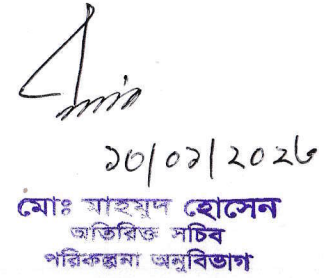 ১০/০১/২০২৬
মোঃ মাহমুদ হোসেন
অতিরিক্ত সচিব
পরিকল্পনা অনুবিভাগ